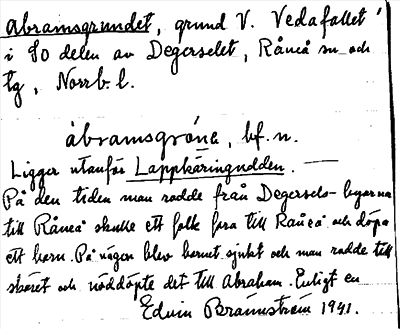 Abramsgrundet, grund V. Vedafallet
i SO delen av Degerselet, Råneå sn och
tg, Norrb. l.
åbramsgróna, bf. n.
Ligger utanför Lappkäringudden. —
På den tiden man rodde från Degersels-byarna
till Råneå skulle ett folk fara till Råneå och döpa
ett barn. På vägen blev barnet sjukt och man rodde till
skäret och nöddöpte det till Abraham. Enligt en
Edvin Brännström 1941.